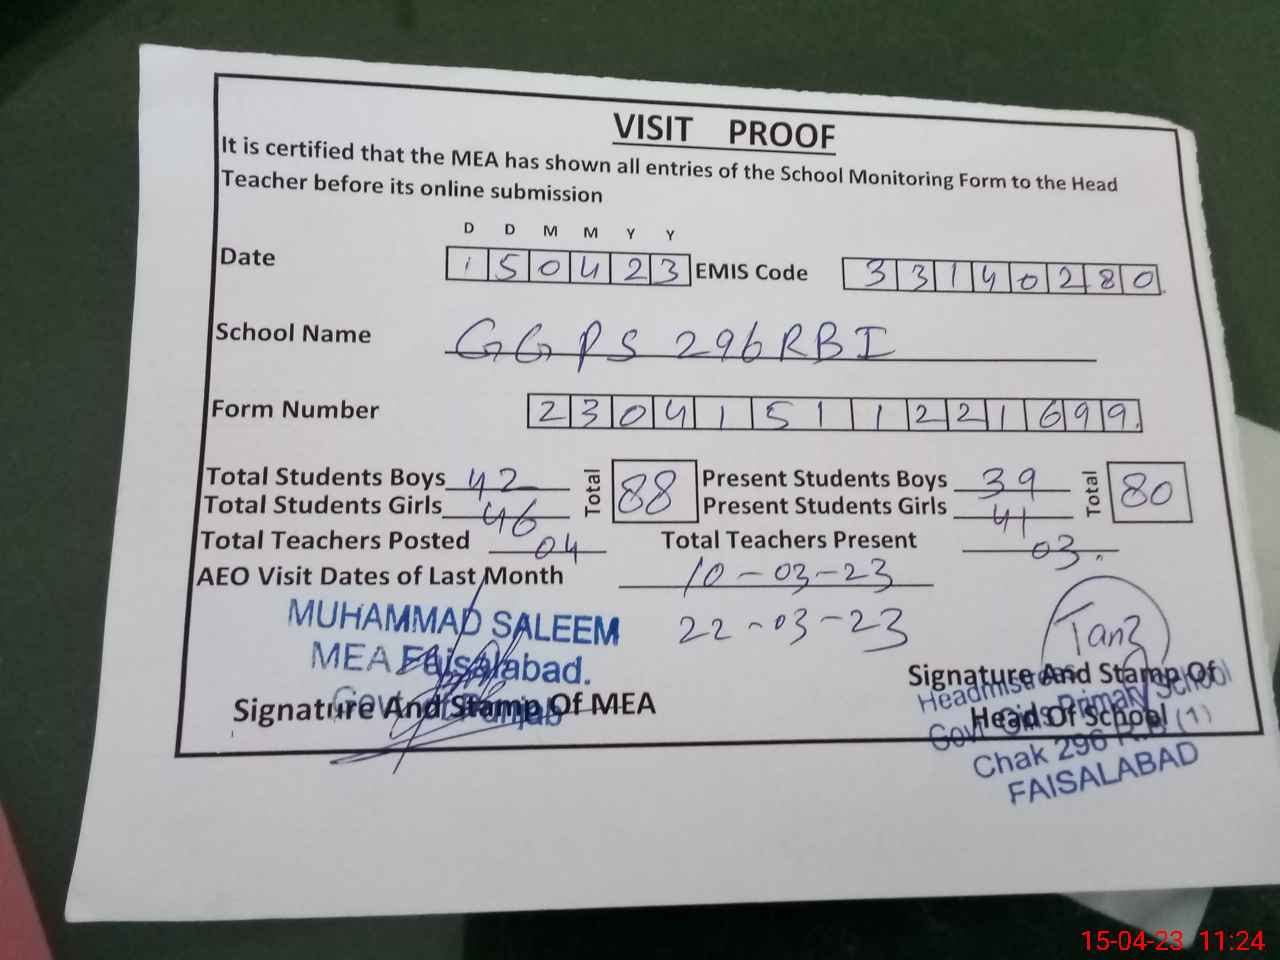 VISIT PROOF
It is certified that the MEA has shown all entries of the School Monitoring Form to the Head
Teacher before its online submission
D D M M Y Y
Date 150423 EMIS Code 33140280
School Name GGPS 296RBI
Form Number 23041511221699
Total Students Boys 42 Total 88 Present Students Boys 39 Total 80
Total Students Girls 46 Present Students Girls 41
Total Teachers Posted 04 Total Teachers Present 03
AEO Visit Dates of Last Month 10-03-23
22-03-23
MUHAMMAD SALEEM
MEA Faisalabad.
Govt. of Punjab
Signature And Stamp Of MEA
Signature And Stamp Of
Head Of School
Headmistress
Govt Girls Primary School
Chak 296 R.B (1)
FAISALABAD
15-04-23 11:24